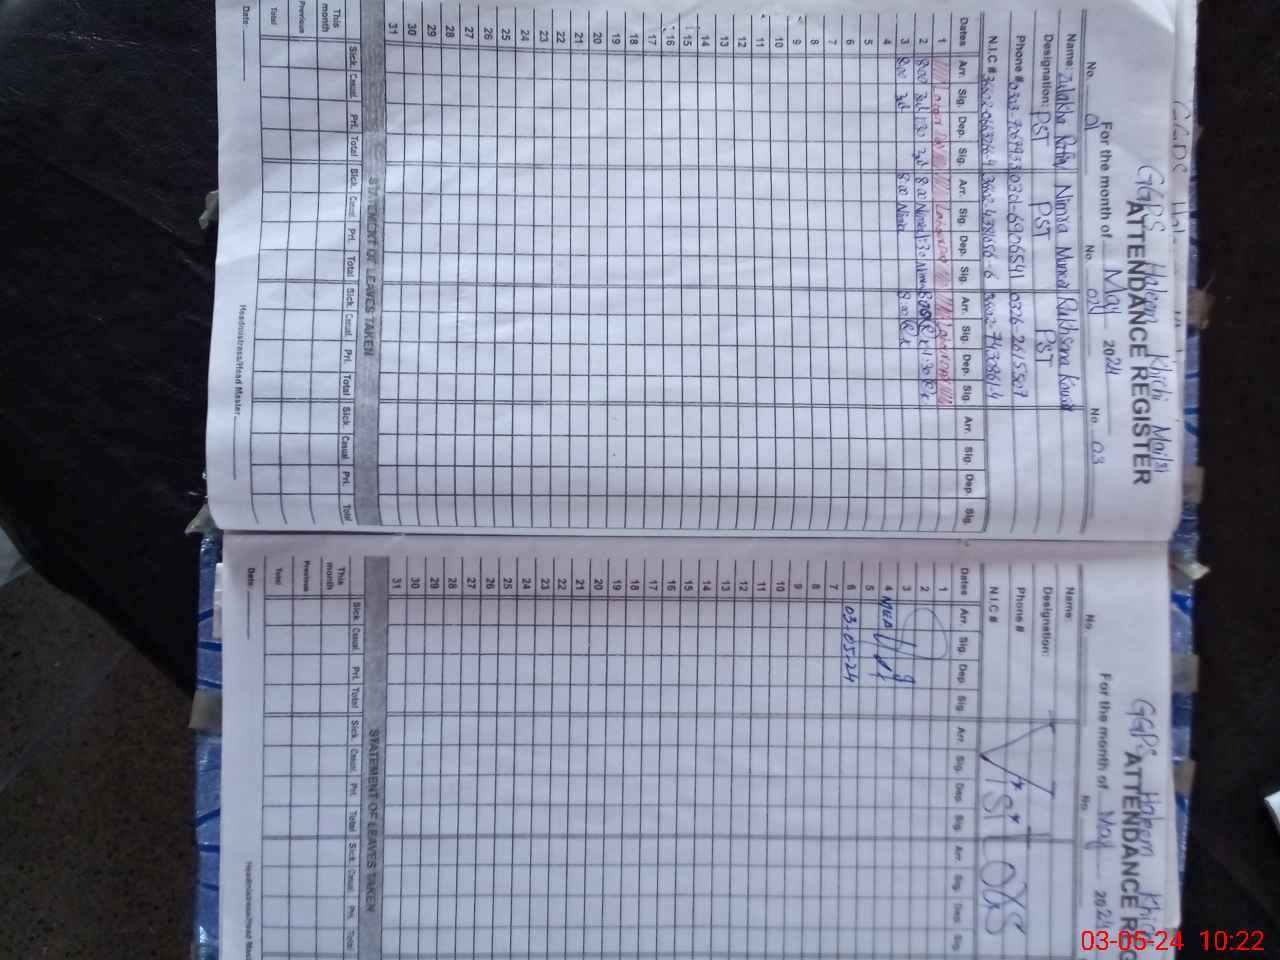 GGPS Haleem Khichi Mailsi
ATTENDANCE REGISTER
For the month of May 2024
No. 01 No. 02 No. 03
Name: Zulakha Nimra Munir Rukhsana Kausar
Designation: PST PST PST
Phone #
N.I.C #
Dates Arr. Sig. Dep. Sig. Arr. Sig. Dep. Sig. Arr. Sig. Dep. Sig. Arr. Sig. Dep. Sig.
1 Labour Day Labour Day Labour Day
2 8:00 1:30 8:00 Nimra 1:30 Nimra 8:00 1:30
3 8:00 8:00 Nimra 8:00
4
5
6
7
8
9
10
11
12
13
14
15
16
17
18
19
20
21
22
23
24
25
26
27
28
29
30
31
STATEMENT OF LEAVES TAKEN
Sick. Casual. Pri. Total Sick. Casual. Pri. Total Sick. Casual. Pri. Total Sick. Casual Pri. Total
This month
Previous
Total
Date: Headmistress/Head Master
GGPS Haleem Khichi
ATTENDANCE R
For the month of May 2024
No. No.
Name:
Designation:
Phone #
N.I.C #
Dates Arr. Sig. Dep. Sig. Arr. Sig. Dep. Sig. Arr. Sig. Dep. Sig.
1
2
3
4
5
6 03.05.24
7
8
9
10
11
12
13
14
15
16
17
18
19
20
21
22
23
24
25
26
27
28
29
30
31
STATEMENT OF LEAVES TAKEN
Sick. Casual. Pri. Total Sick. Casual. Pri. Total Sick. Casual. Pri. Total
This month
Previous
Total
Date: Headmistress/Head Mas
03-05-24 10:22